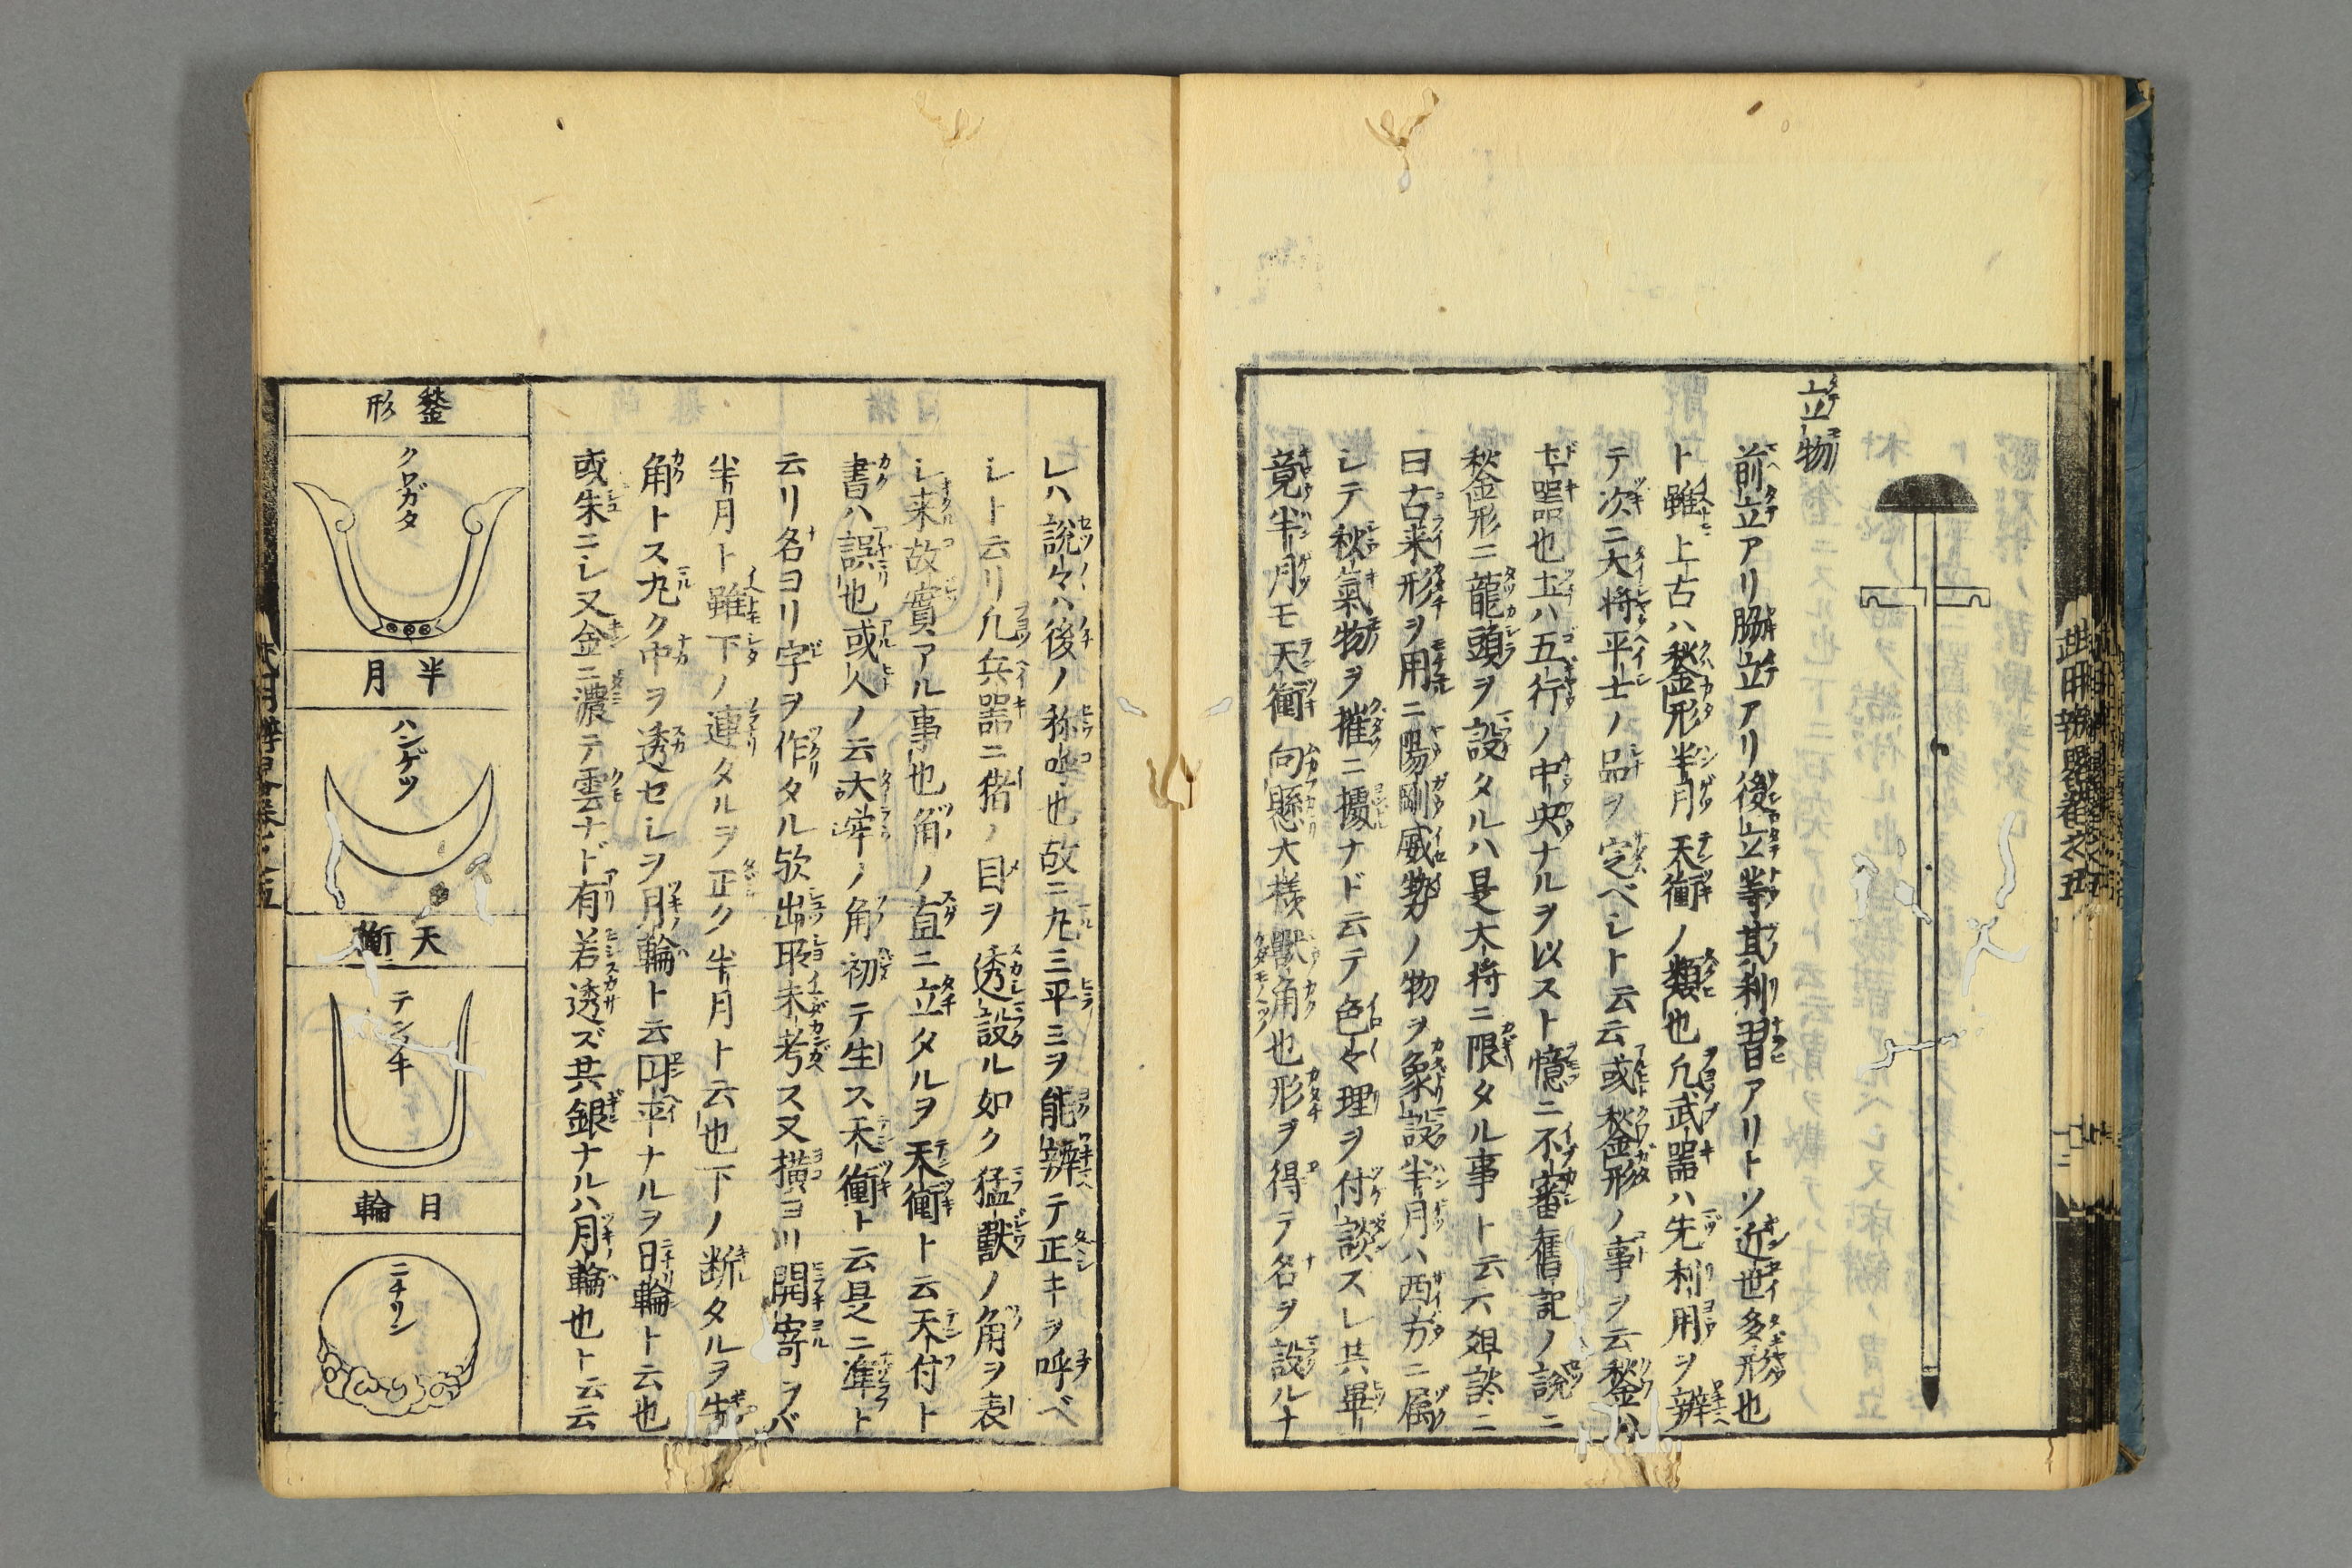 立物
前立アリ脇立アリ後立等其利習アリトソ近世多形也
ト雖上古ハ鍬形半月天衝ノ類也凡武器ハ先利用ヲ辨
テ次ニ大将平士ノ品ヲ定ベシト云云或鍬形ノ事ヲ云鍬ハ
土器也土ハ五行ノ中央ナルヲ以スト憶ニ不審舊記ノ説ニ
鍬形ニ龍頭ヲ設タルハ是大将ニ限タル事ト云云爼談ニ
曰古来形ヲ用ニ陽剛威勢ノ物ヲ象設半月ハ西方ニ属
シテ秋氣物ヲ摧ニ據ナド云テ色々理ヲ付談スレ共畢
竟半月モ天衝向懸大様獸角也形ヲ得テ名ヲ設ルナ
レハ説々ハ後ノ称呼也故ニ九三平ミヲ能辨テ正キヲ呼ベ
シト云リ凡兵器ニ猪ノ目ヲ透設ル如ク猛獸ノ角ヲ表
シ来故實アル事也角ノ直ニ立タルヲ天衝ト云天付ト
書ハ誤也或人ノ云大牢ノ角初テ生ス天衝ト云是ニ準ト
云リ名ヨリ字ヲ作タル欤出所未考ス又横ヨリ開寄ヲバ
半月ト雖下ノ連タルヲ正ク半月ト云也下ノ断タルヲ
角トス丸ク中ヲ透セシヲ月輪ト云円平ナルヲ日輪ト云也
或朱ニシ又金ニ濃テ雲ナド有若透ズ共銀ナルハ月輪也ト云云
鍬形
クワガタ
半月
ハンゲツ
天衝
テンツキ
日輪
ニチリン